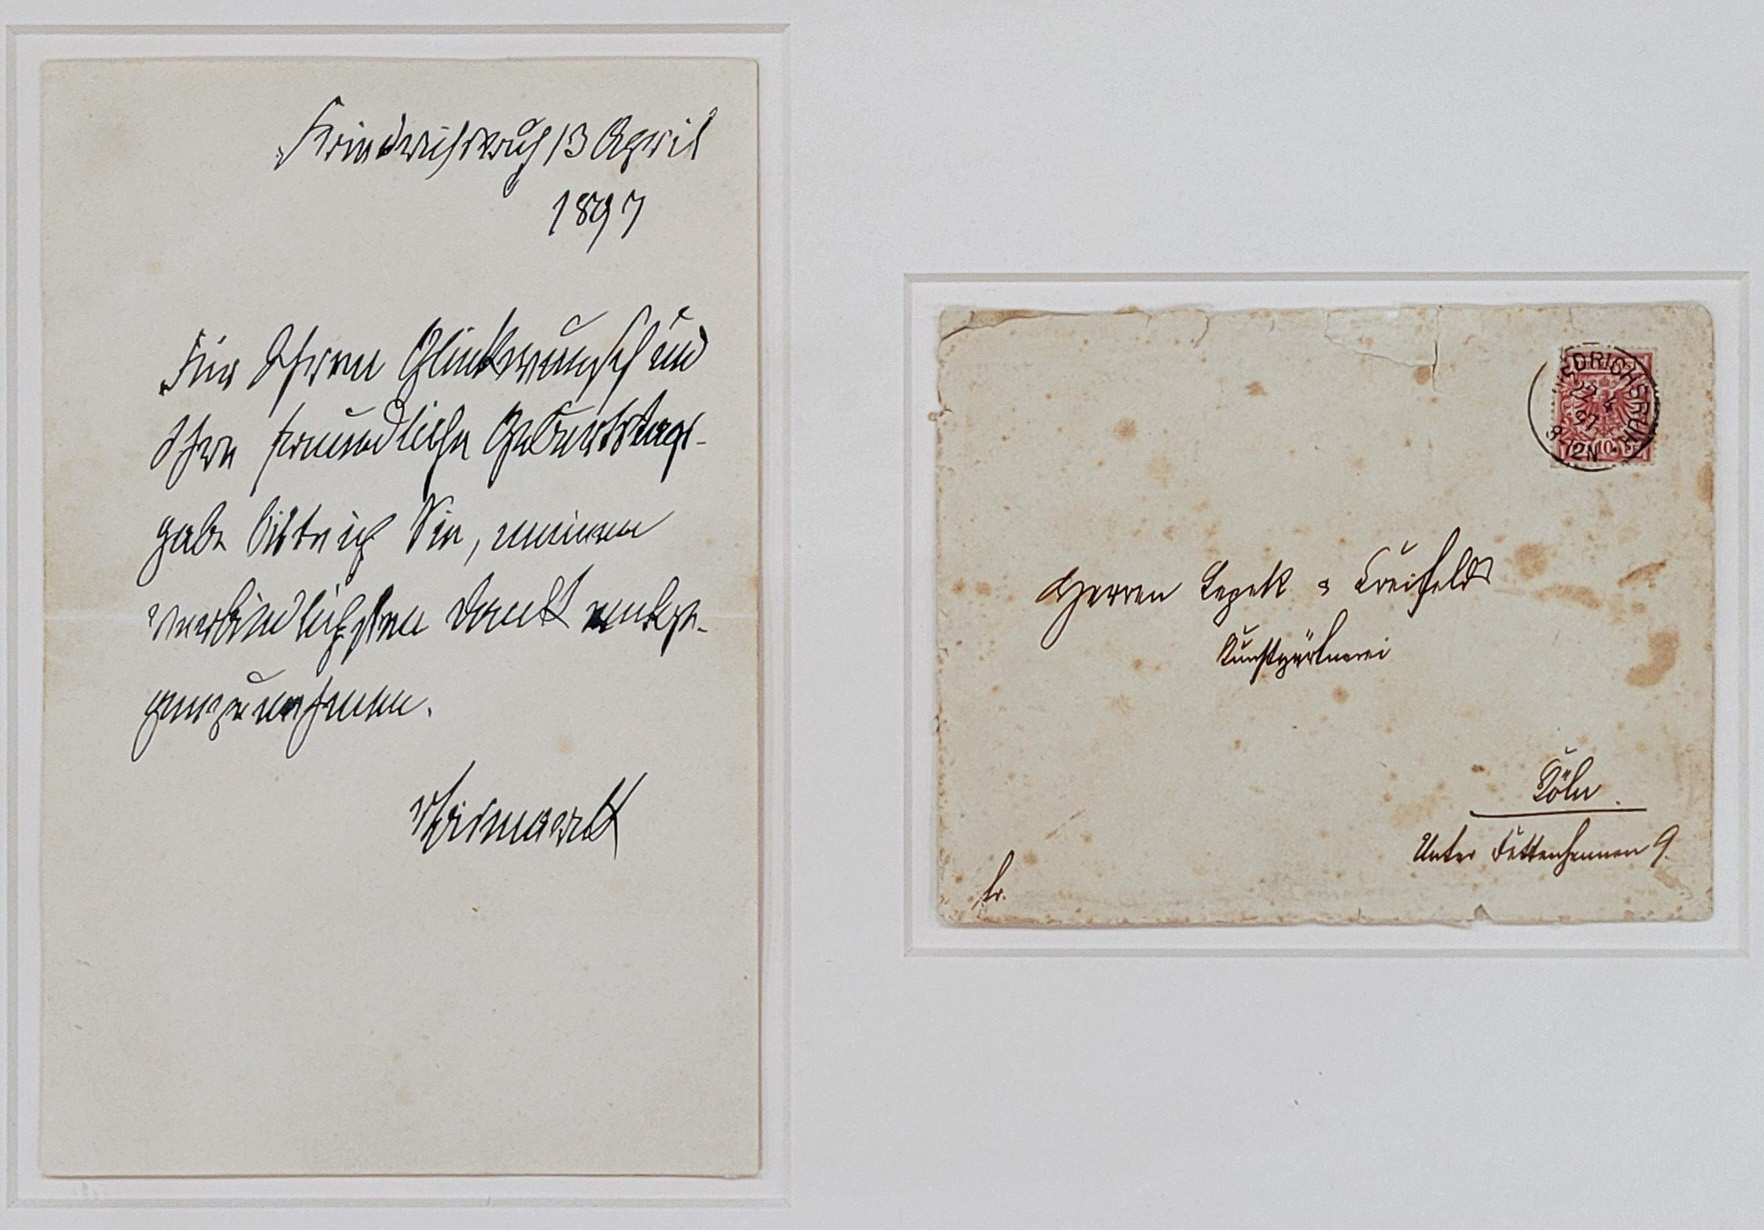 Friedrichsruh 13 April
1897
Für Ihren Glückwunsch und
Ihre freundliche Geburtstags-
gabe bitte ich Sie, meinen
verbindlichsten Dank entge-
genzunehmen.
vBismarck
EDRICHSRUH
97
8-12N
10
Herren &
Kunstgärtnerei
Cöln.
Unter Fettenhennen 9.
fr.